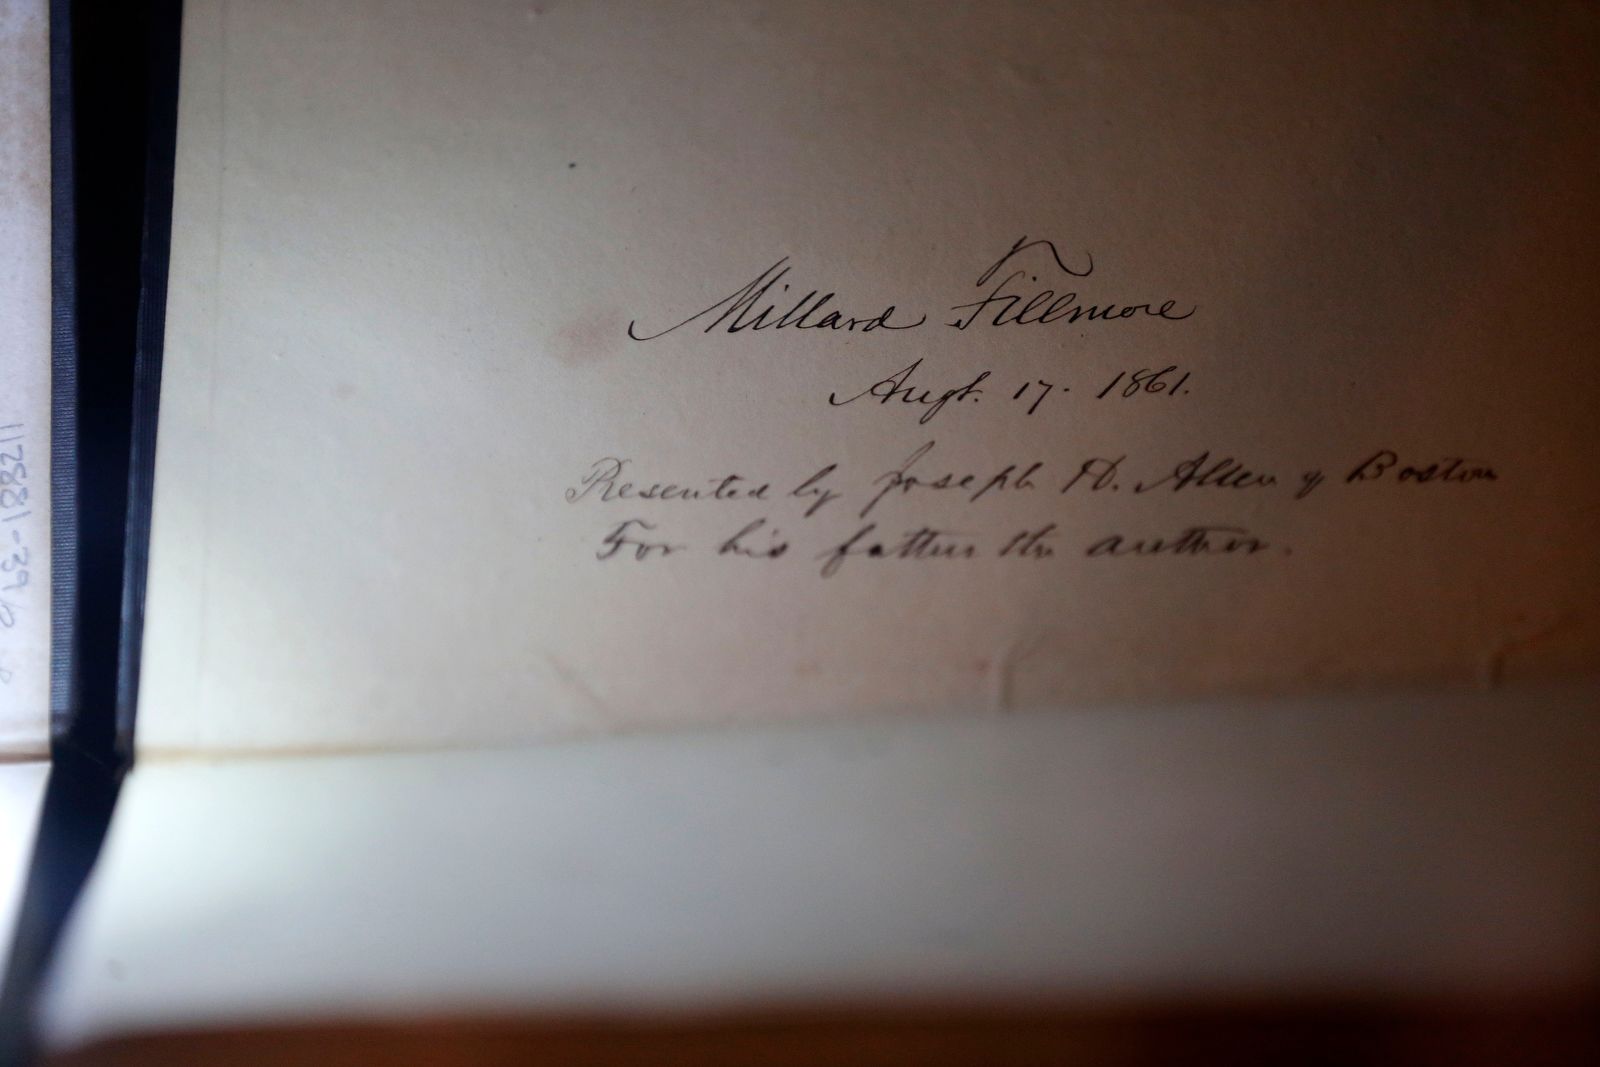 Millard Fillmore
Augt. 17. 1861.
Presented by Joseph H. Allen of Boston
For his father the author.